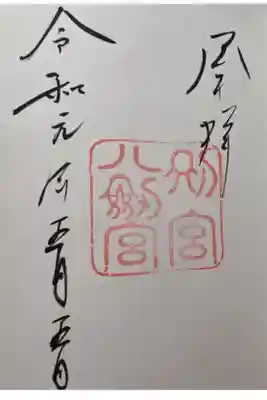 奉拝
別宮
八劔宮
令和元年五月五日